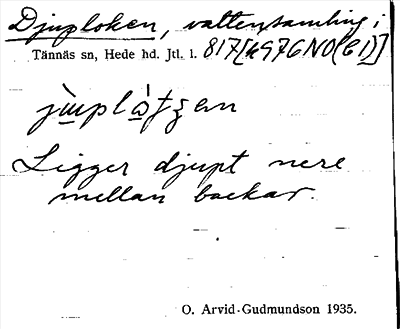 Djuploken, vattensamling i
Tännäs sn, Hede hd. Jtl. l. 817[h976NO(61)]
Ligger djupt nere
mellan backar.
O. Arvid-Gudmundson 1935.